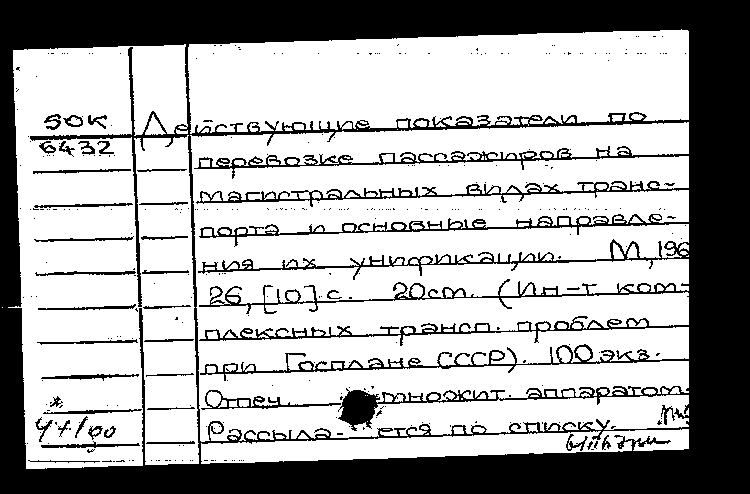 50К
6432
Действующие показатели по
перевозке пассажиров на
магистральных видах транс-
порта и основные направле-
ния их унификации. М, 196
26, [10] с. 20cm. (Ин-т ком-
плексных трансп. проблем
при Госплане СССР). 100 экз.
Отпеч. множит. аппаратом.
Рассыла- ется по списку.